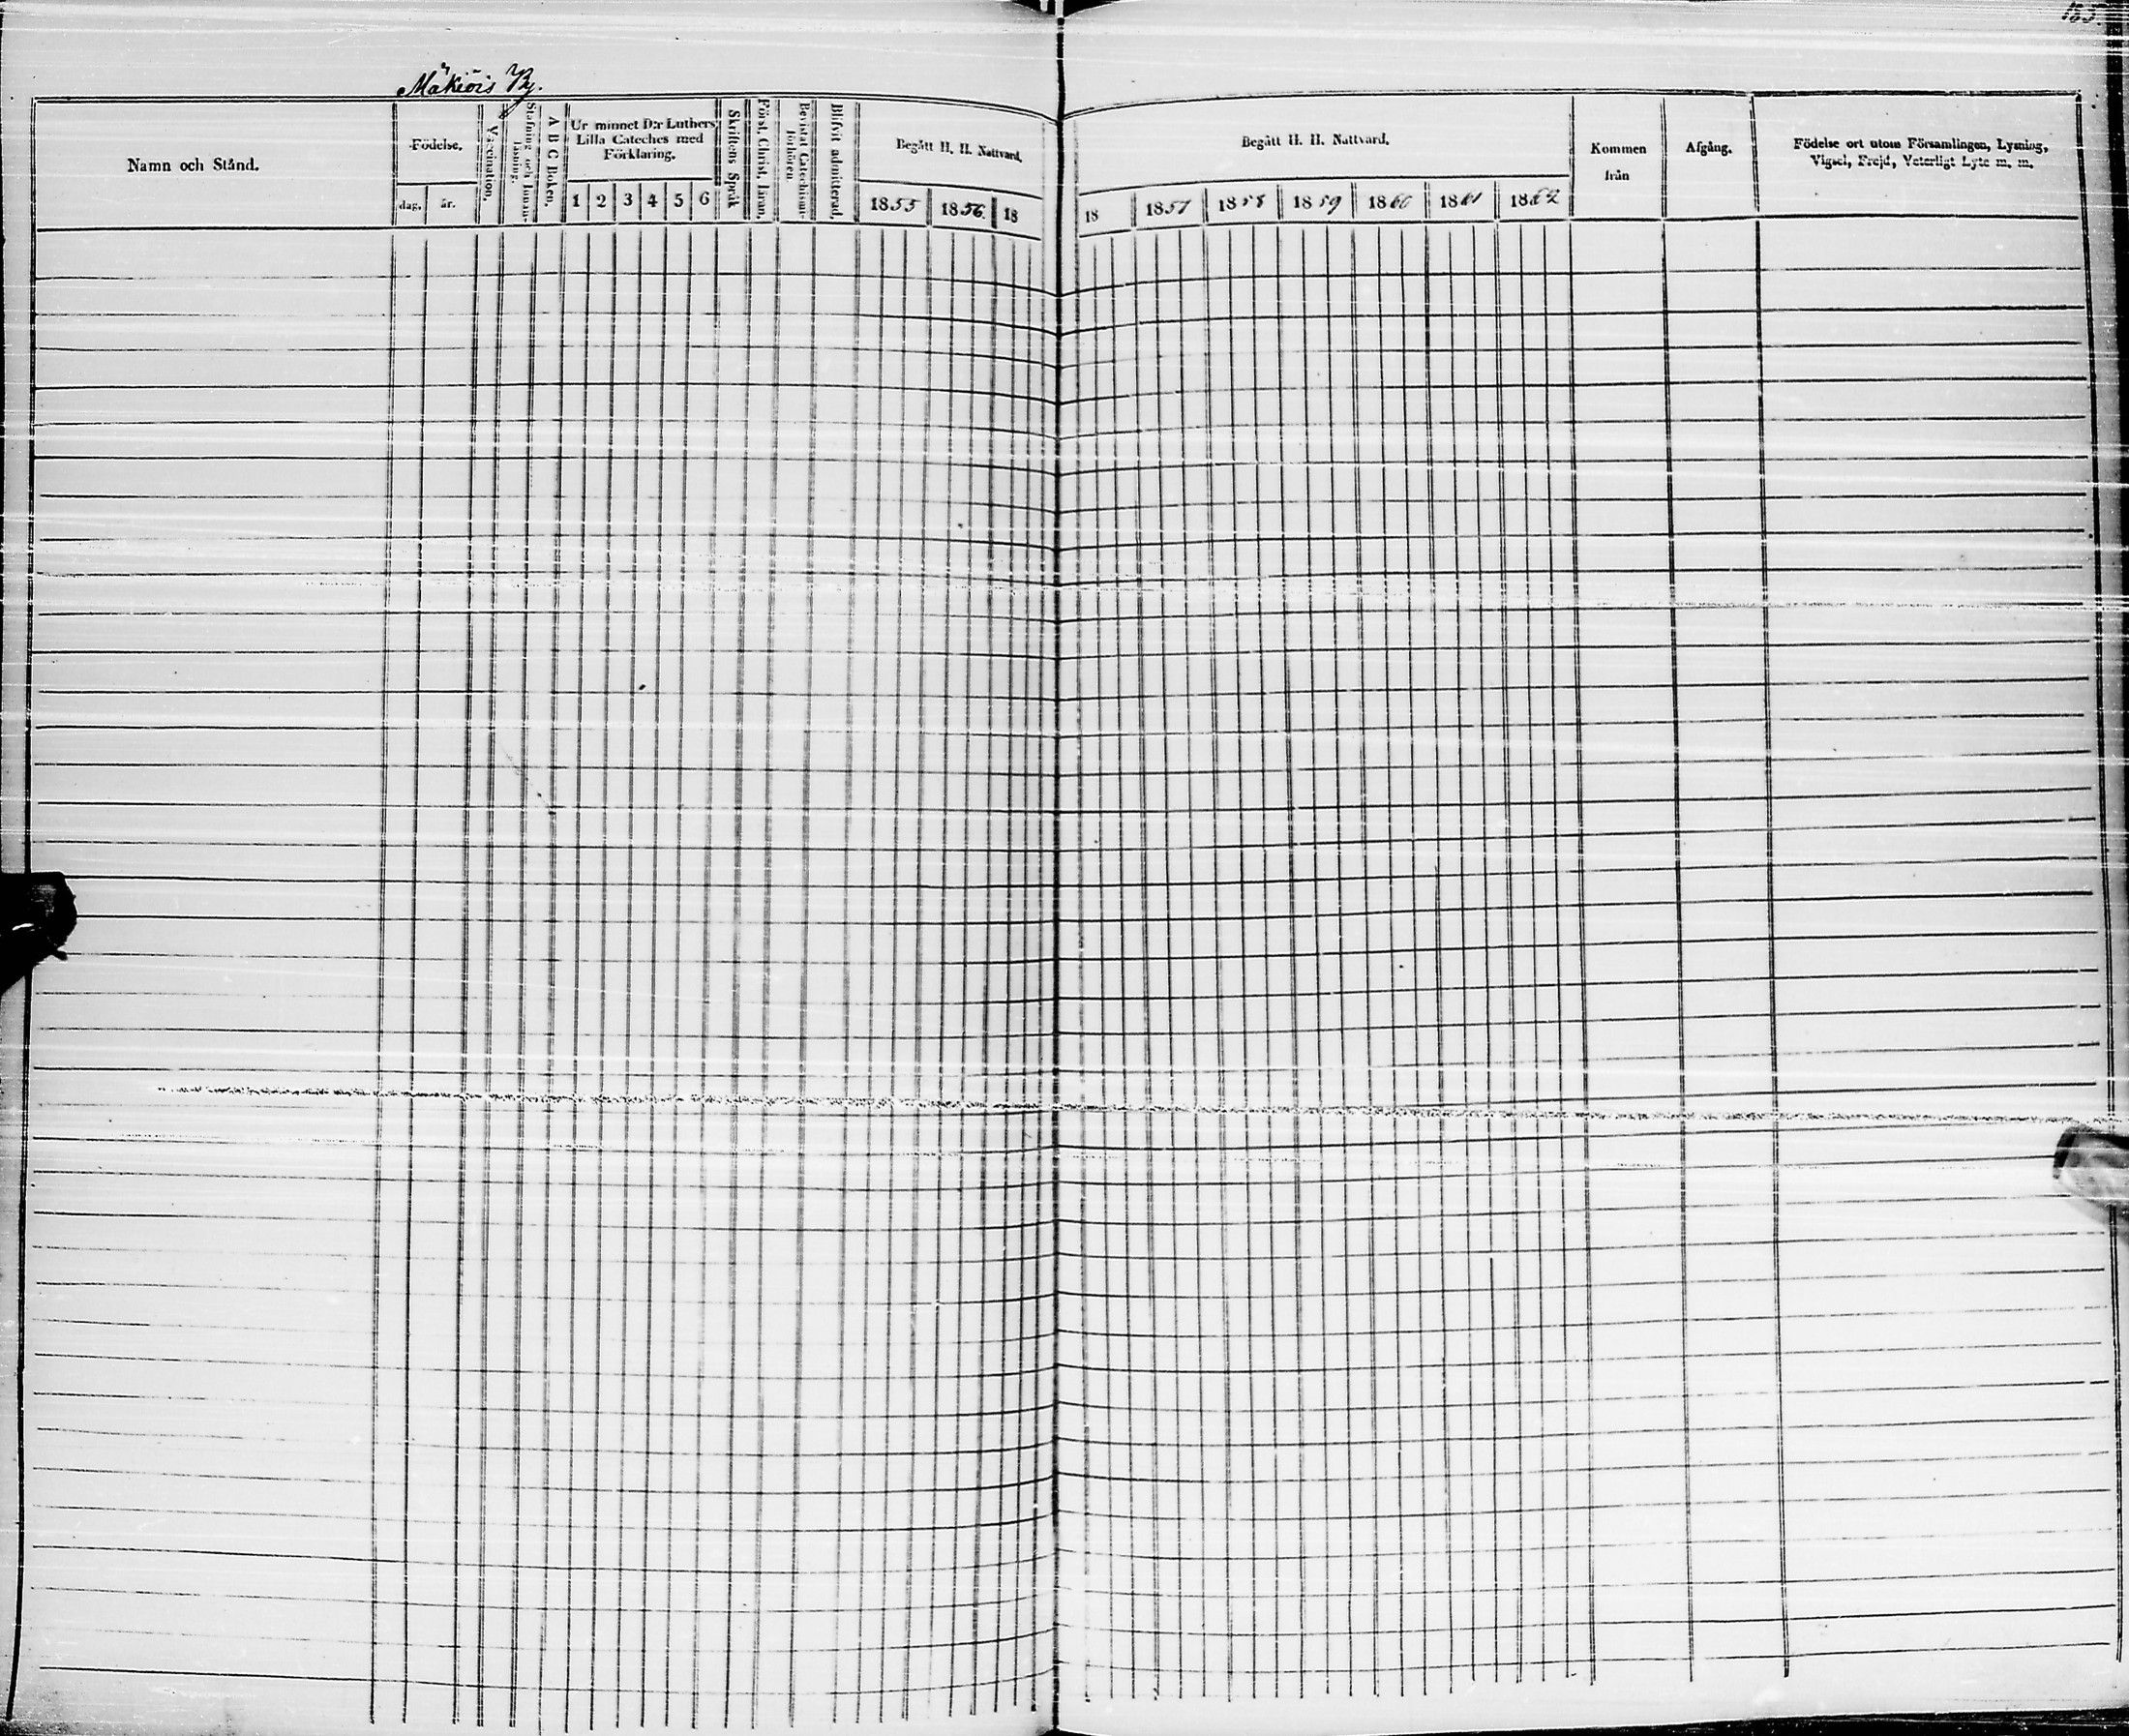 185.
Mäkiöis By.
Namn och Stånd.
Födelse.
dag.
år.
Vaccination.
Stafning och Innan-
läsning.
A B C Boken.
Ur minnet D:r Luthers
Lilla Cateches med
Förklaring.
1 2 3 4 5 6
Skriftens Språk
Först. Christ. läran.
Bevistat Catechismi-
förhören.
Blifvit admitterad.
Begått H. H. Nattvard.
1855 1856. 18
Begått H. H. Nattvard.
18 1857 1858 1859 1860 1861 1862
Kommen
från
Afgång.
Födelse ort utom Församlingen, Lysning,
Vigsel, Frejd, Veterligt Lyte m. m.